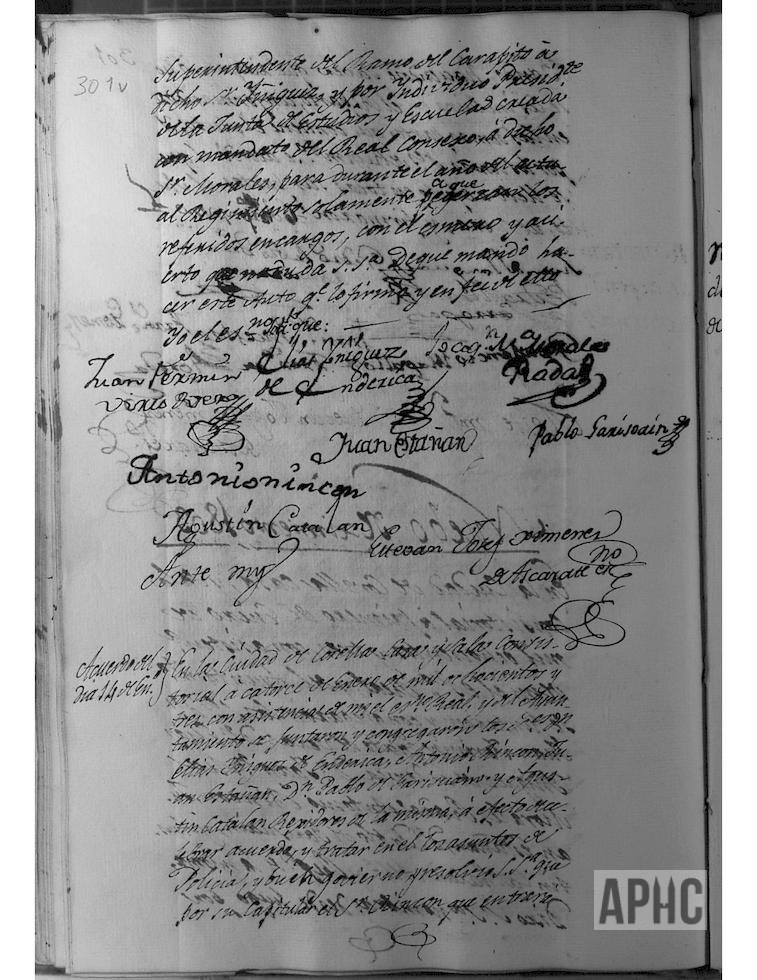 301v
Superintendente del Ramo del Carapito à
dicho Sr. Yñiguez, y por Individuo Presidte
de la Junta de Estudios y Escuelas creada
con mandato del Real Consexo, á dicho
Sr. Morales, para durante el año del actu-
al Regimiento solamente a que exerzan los
referidos encargos, con el esmero y aci-
erto que S. Sa. De que mandó ha-
cer este Auto qe. lo firma y en feé de ello
Yo el esno.
Juan Fermin
Elias Yñiguez
de Enderica
Morales
Rada
Juan Otañan
Pablo Garisoain
Antonio rincon
Agustín Catalan
Ante my
Estevan Josef Ximenez
de Ascarate esno
Acuerdo del
dia 14 de En.
En la Ciudad de Corella Casa, y Salas Consis-
torial á catorce de Enero de mil ochocientos y
tres con asistencia de mi el esno Real, y del Ayun-
tamiento se juntaron y congregaron los Sres. Dn.
Elias Yñiguez de Enderica, Antonio Rincon, Ju-
an Otañan, Dn. Pablo de Garisoain y Agus-
tin Catalan Regidores de la misma, á efecto de ce-
lebrar acuerdo, y tratar en el los asuntos de
Policia, y buen govierno y resolvio S. Sa. que
por su Capitular el Sr. Rincon que entrara
APHC